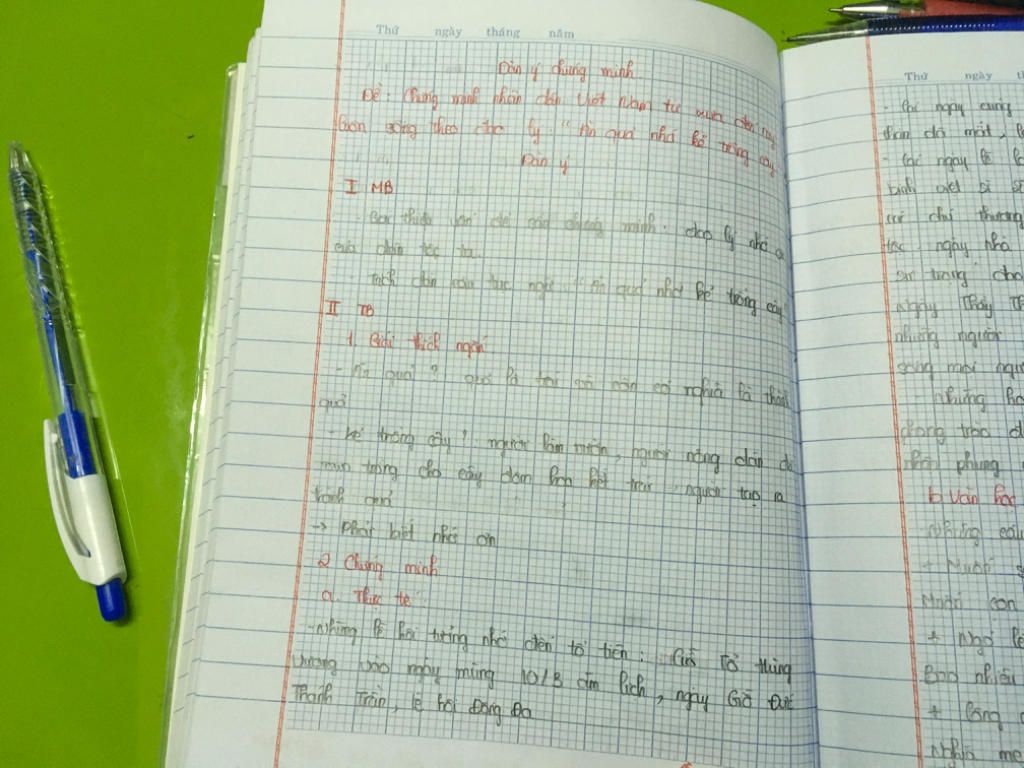 Thứ ngày tháng năm
Dàn ý chứng minh
Đề: Chứng minh nhân dân Việt Nam từ xưa đến nay
luôn sống theo đạo lý "Ăn quả nhớ kẻ trồng cây
Dàn ý
I MB
- Giới thiệu vấn đề cần chứng minh: đạo lý nhớ
của dân tộc ta.
- Trích dẫn câu tục ngữ "Ăn quả nhớ kẻ trồng cây"
II TB
1. Giải thích ngắn
- Ăn quả? quả là trái mà còn có nghĩa là thành
quả
- kẻ trồng cây?: người làm vườn, người nông dân đã
trồng cho cây đơm hoa kết trái, người tạo ra
thành quả
-> Phải biết nhớ ơn
2 Chứng minh
a. Thực tế:
- Những lễ hội tưởng nhớ đến tổ tiên: Giỗ Tổ Hùng
Vương vào ngày mùng 10/3 âm lịch, ngày Giỗ Đức
Thánh Trần, lễ hội Đống Đa
Thứ ngày
- ngày cúng
- Các ngày lễ
binh liệt sĩ
thương
tộc ngày nhà
sư trọng đạo
Ngày Thầy
những người
sáng mọi
- những
phong trào
b. Văn học
Những câu
+ Muốn
Muốn con
+ Ngó
Bao nhiêu
+ Công
Nghĩa mẹ